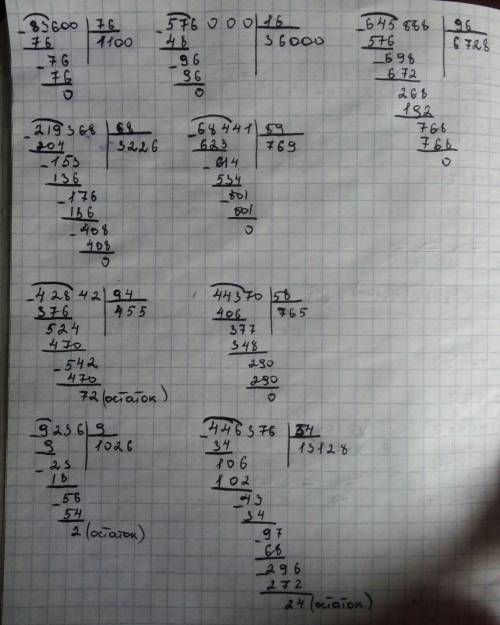 -83600 | 76
76 | 1100
-76
76
0
-576000 | 16
48 | 36000
-96
96
0
-645888 | 96
576 | 6728
-698
672
268
192
768
768
0
-219368 | 68
204 | 3226
-153
136
-176
136
-408
408
0
-68441 | 89
623 | 769
-614
534
-801
801
0
-42842 | 94
376 | 455
524
470
-542
470
72 (остаток)
44370 | 58
406 | 765
377
348
290
290
0
-9236 | 9
9 | 1026
-23
18
-56
54
2 (остаток)
-446376 | 34
34 | 13128
106
102
-43
34
-97
68
-296
272
24 (остаток)